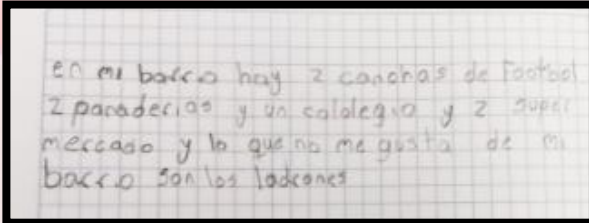 en mi barrio hay 2 canchas de Footbol
2 panaderias y un cololegio y 2 super
mercado y lo que no me gusta de mi
barrio son los ladrones